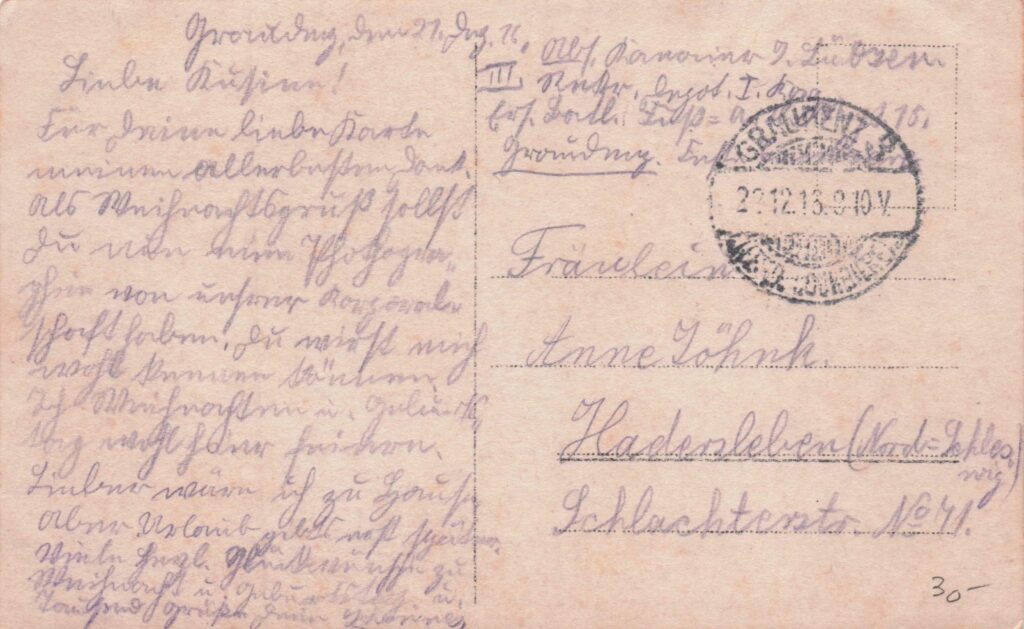 Graudenz, den 21. Dez. 16.
Liebe Kusine!
Für Deine liebe Karte
meinen allerbesten Dank.
Als Weihnachtsgruß sollst
Du nun eine Photogra-
phie von unsrer Korporal-
schaft haben. Du wirst mich
wohl kennen können.
Ich Weihnachten u. Geburts-
tag wohl hier feiern.
Lieber wäre ich zu Hause.
Aber Urlaub gibts erst später.
Viele herzl. Glückwünsche zu
Weihnacht u. Geburtstag u.
Tausend Grüße Dein
Abs. Kanonier J. Lübsen.
III Rekr. Depot. I.
Ers. Batl. Fuß=a 15.
Graudenz.
GRAUDENZ
12.16. 8-10 V.
Fräulein
Anne Jöhnk.
Hadersleben (Nord=Schles
wig)
Schlachterstr. No 41.
30-